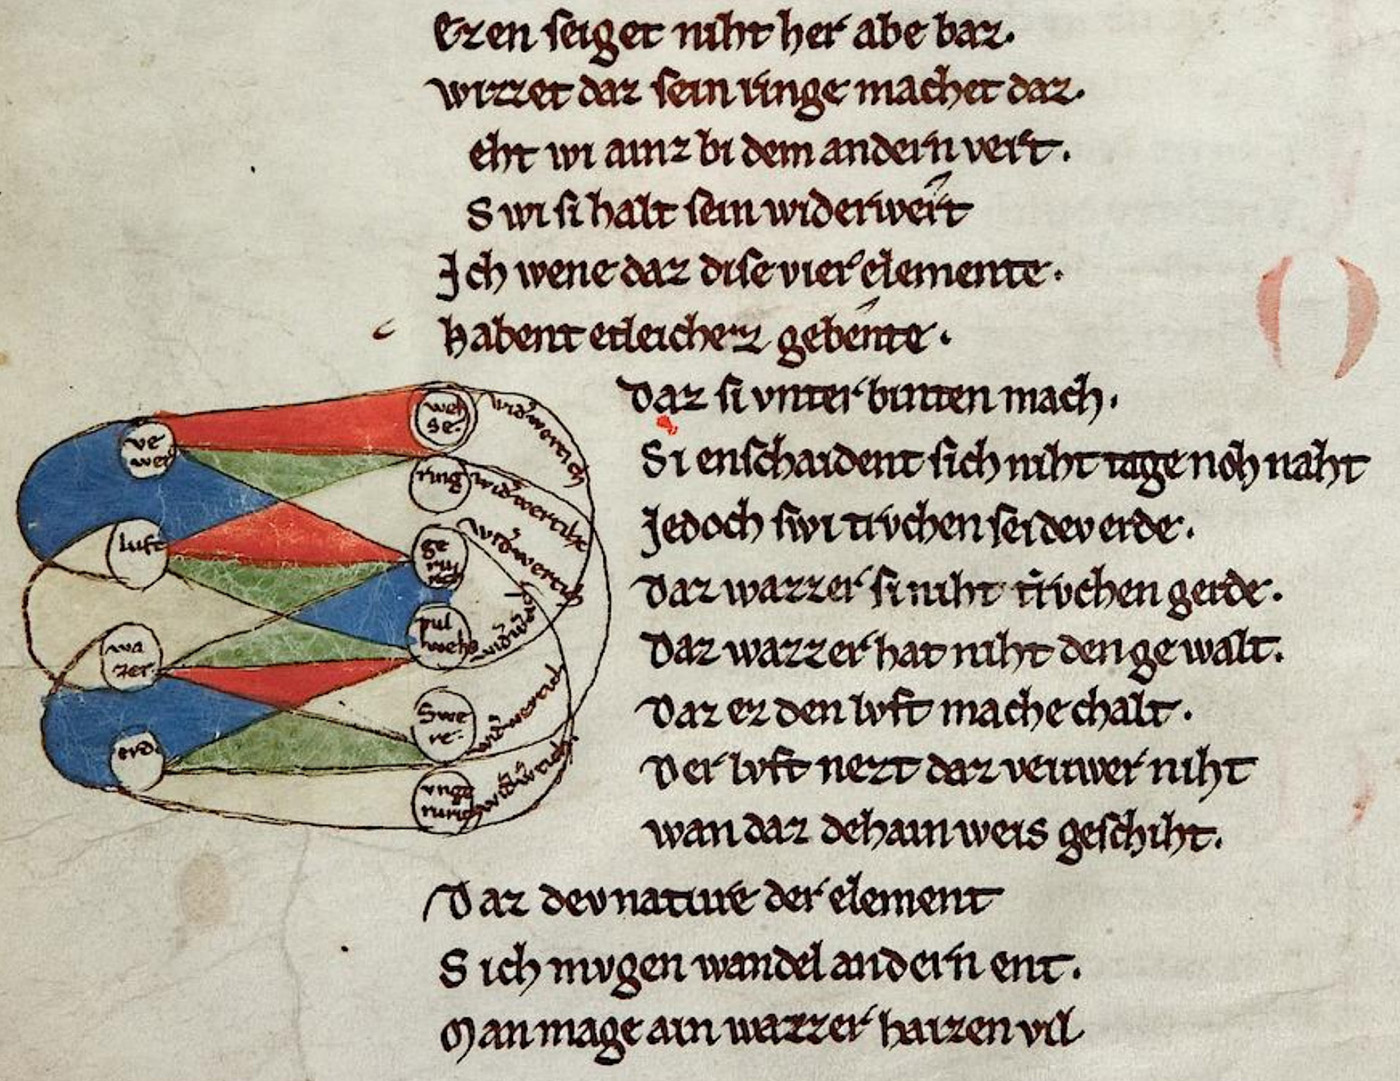 Ezen seiget niht her abe baz.
wizzet daz sein ringe machet daz.
eht wi ainz bi dem andern vert.
Swi si halt sein widerwert
Ich wene daz dise vier elemente.
habent etleichez gebente.
Daz si vnter binten mach.
Si enschaident sich niht tage noh naht
Jedoch swi trvchen sei dev erde.
Daz wazzer si niht trvchen gerde.
Daz wazzer hat niht den gewalt.
Daz ez den lvft mache chalt.
Der lvft nezt daz veuwer niht
wan daz dehain weis geschiht.
Daz dev nature der element
Sich mvgen wandel andern ent.
Man mage ain wazzer haizen vil
ve
wer
luft
wa
zer
erd
weh
se
ring
ge
ru
pul
weh
Swe
re
vnge
ruric
widwertich
widwertich
widwertich
widwertich